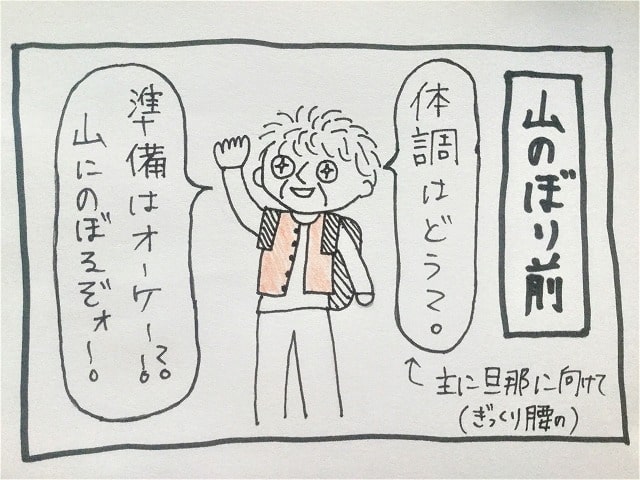 山のぼり前
体調はどう?。
主に旦那に向けて
(ぎっくり腰の)
準備はオーケー!?。
山にのぼるぞォ〜。